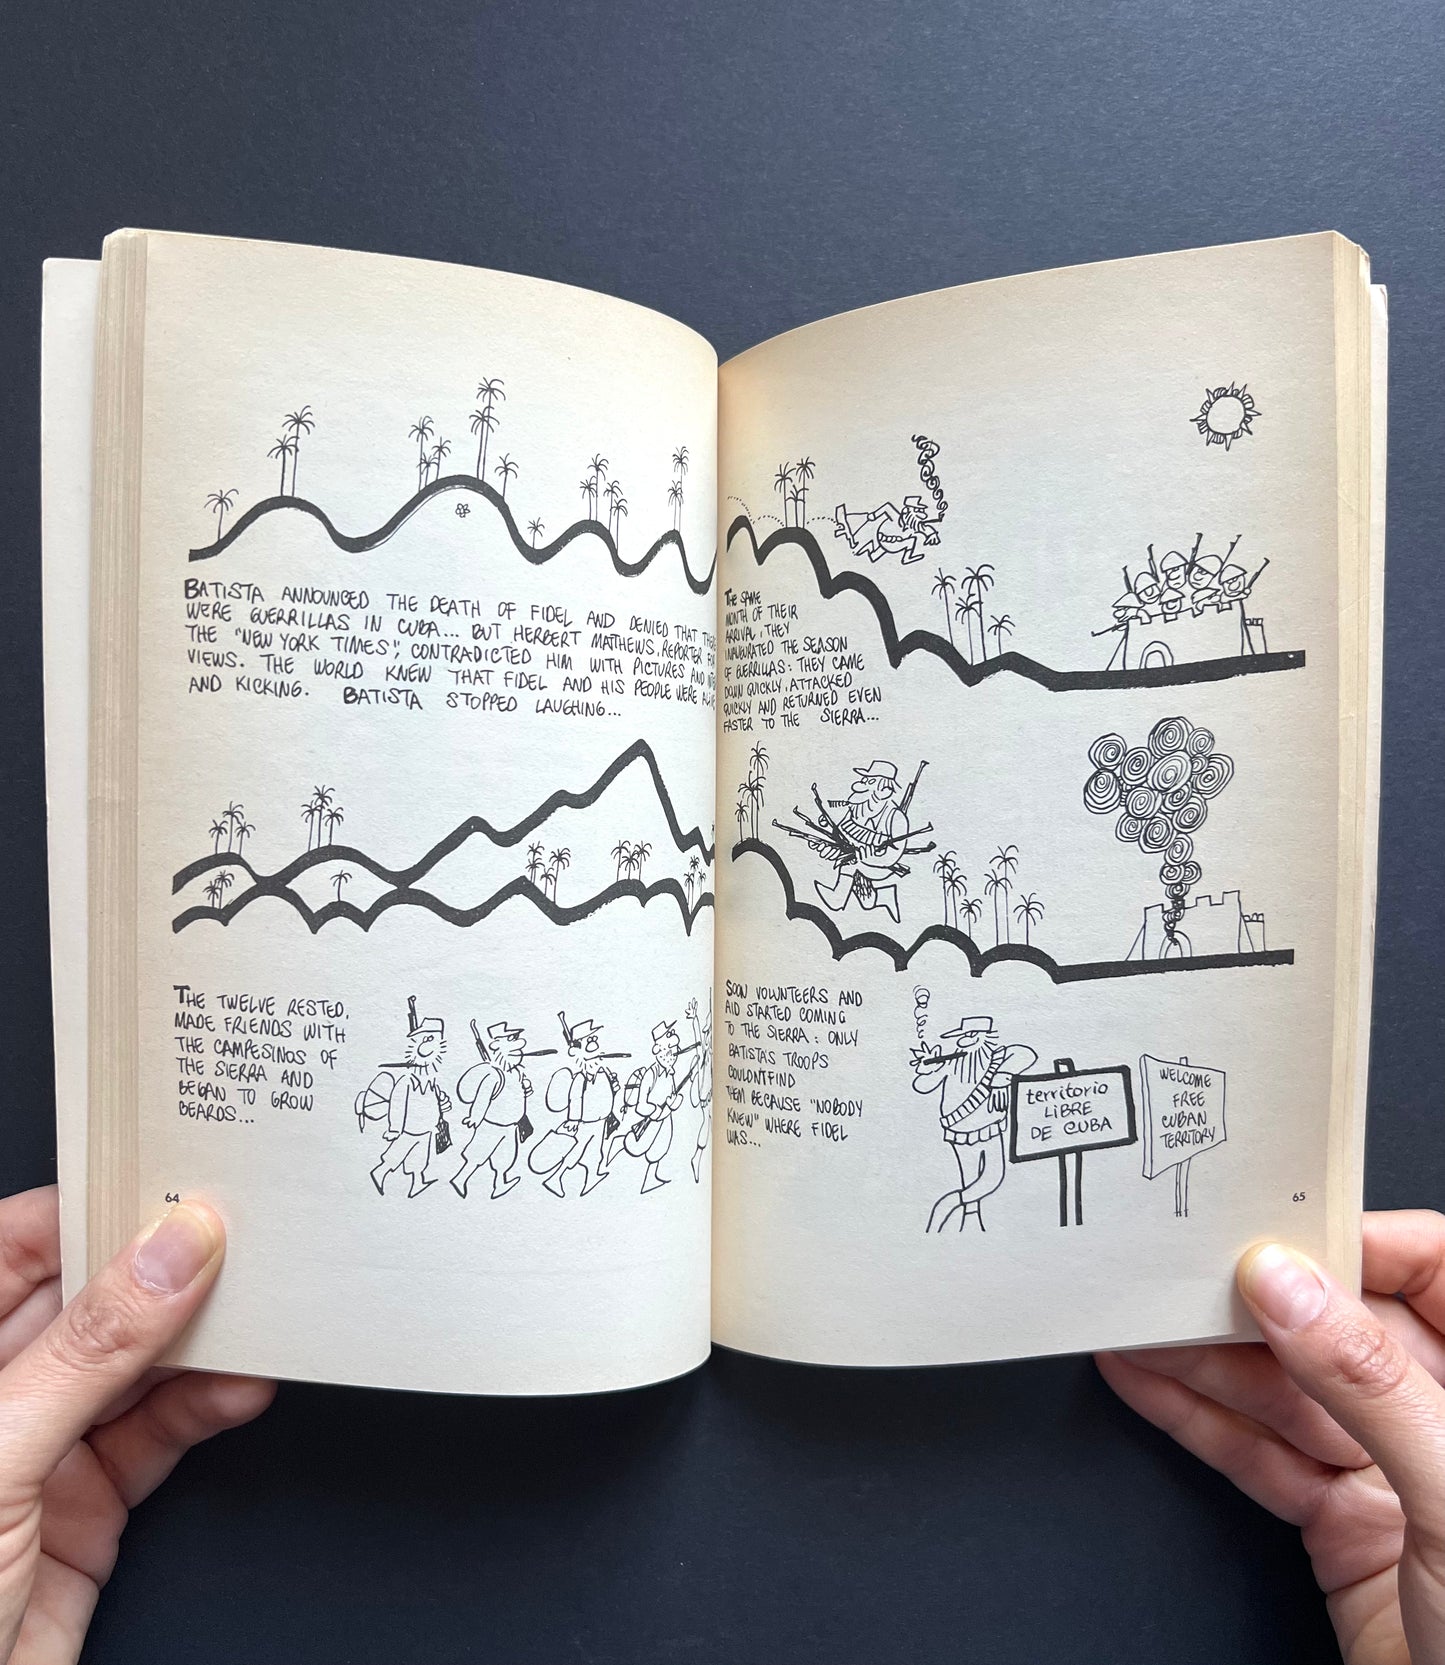 BATISTA ANNOUNCED THE DEATH OF FIDEL AND DENIED THAT THERE
WERE GUERRILLAS IN CUBA... BUT HERBERT MATTHEWS, REPORTER FOR
THE "NEW YORK TIMES", CONTRADICTED HIM WITH PICTURES AND INTER
VIEWS. THE WORLD KNEW THAT FIDEL AND HIS PEOPLE WERE ALIVE
AND KICKING. BATISTA STOPPED LAUGHING...
THE TWELVE RESTED,
MADE FRIENDS WITH
THE CAMPESINOS OF
THE SIERRA AND
BEGAN TO GROW
BEARDS...
64
THE SAME
MONTH OF THEIR
ARRIVAL, THEY
INAUGURATED THE SEASON
OF GUERRILLAS: THEY CAME
DOWN QUICKLY, ATTACKED
QUICKLY AND RETURNED EVEN
FASTER TO THE SIERRA...
SOON VOLUNTEERS AND
AID STARTED COMING
TO THE SIERRA: ONLY
BATISTA'S TROOPS
COULDN'T FIND
THEM BECAUSE "NOBODY
KNEW" WHERE FIDEL
WAS...
territorio
LIBRE
DE CUBA
WELCOME
FREE
CUBAN
TERRITORY
65